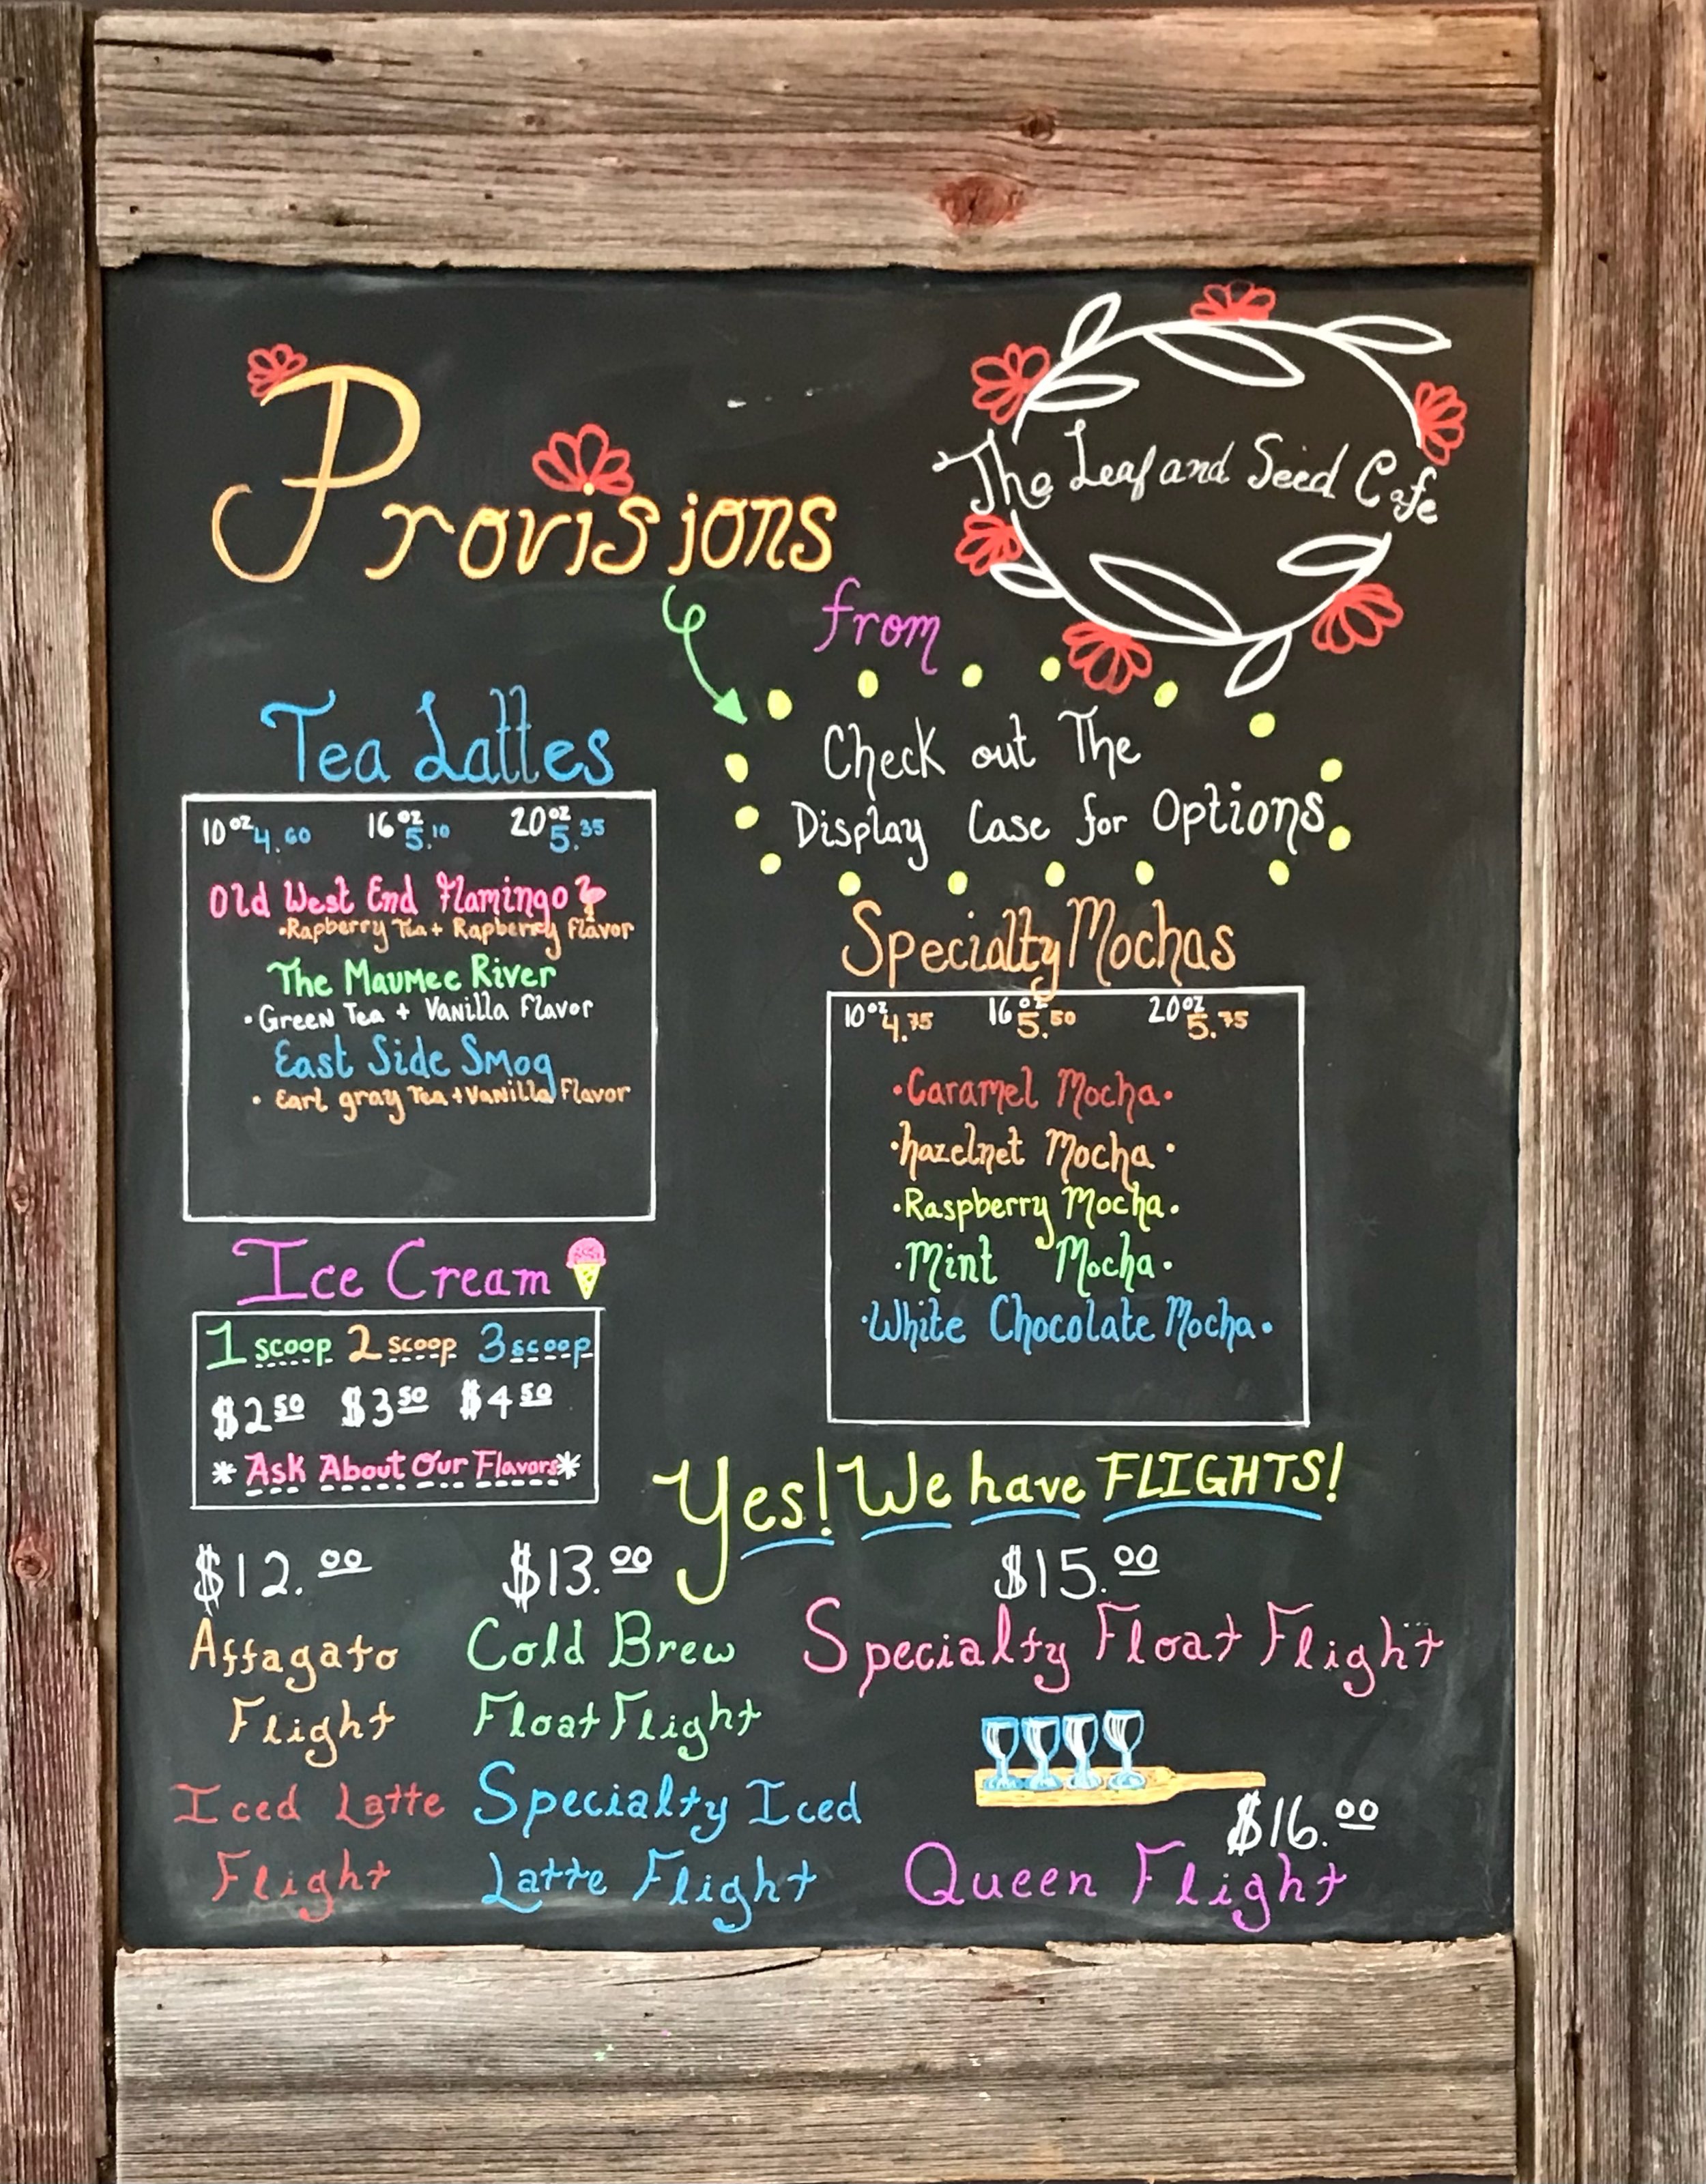 Provisions
from
The Leaf and Seed Cafe
Check out The
Display Case for Options
Tea Lattes
10oz 4.60 16oz 5.10 20oz 5.35
Old West End Flamingo
•Rapberry Tea + Rapberry Flavor
The Maumee River
•Green Tea + Vanilla Flavor
East Side Smog
• Earl gray Tea + Vanilla Flavor
Specialty Mochas
10oz 4.75 16oz 5.50 20oz 5.75
•Caramel Mocha•
•hazelnet Mocha•
•Raspberry Mocha•
•Mint Mocha•
•White Chocolate Mocha•
Ice Cream
1 scoop 2 scoop 3 scoop
$2.50 $3.50 $4.50
* Ask About Our Flavors *
Yes! We have FLIGHTS!
$12.00
Affagato
Flight
Iced Latte
Flight
$13.00
Cold Brew
Float Flight
Specialty Iced
Latte Flight
$15.00
Specialty Float Flight
$16.00
Queen Flight